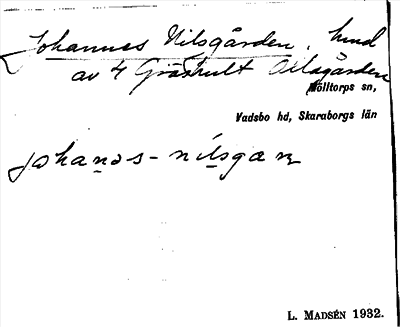 Johannes Nilsgården, hmd
av 4 Gräshult Nilsgården
Mölltorps sn,
Vadsbo hd, Skaraborgs län
johanəs-nilsgaɳ
L. MADSÉN 1932.